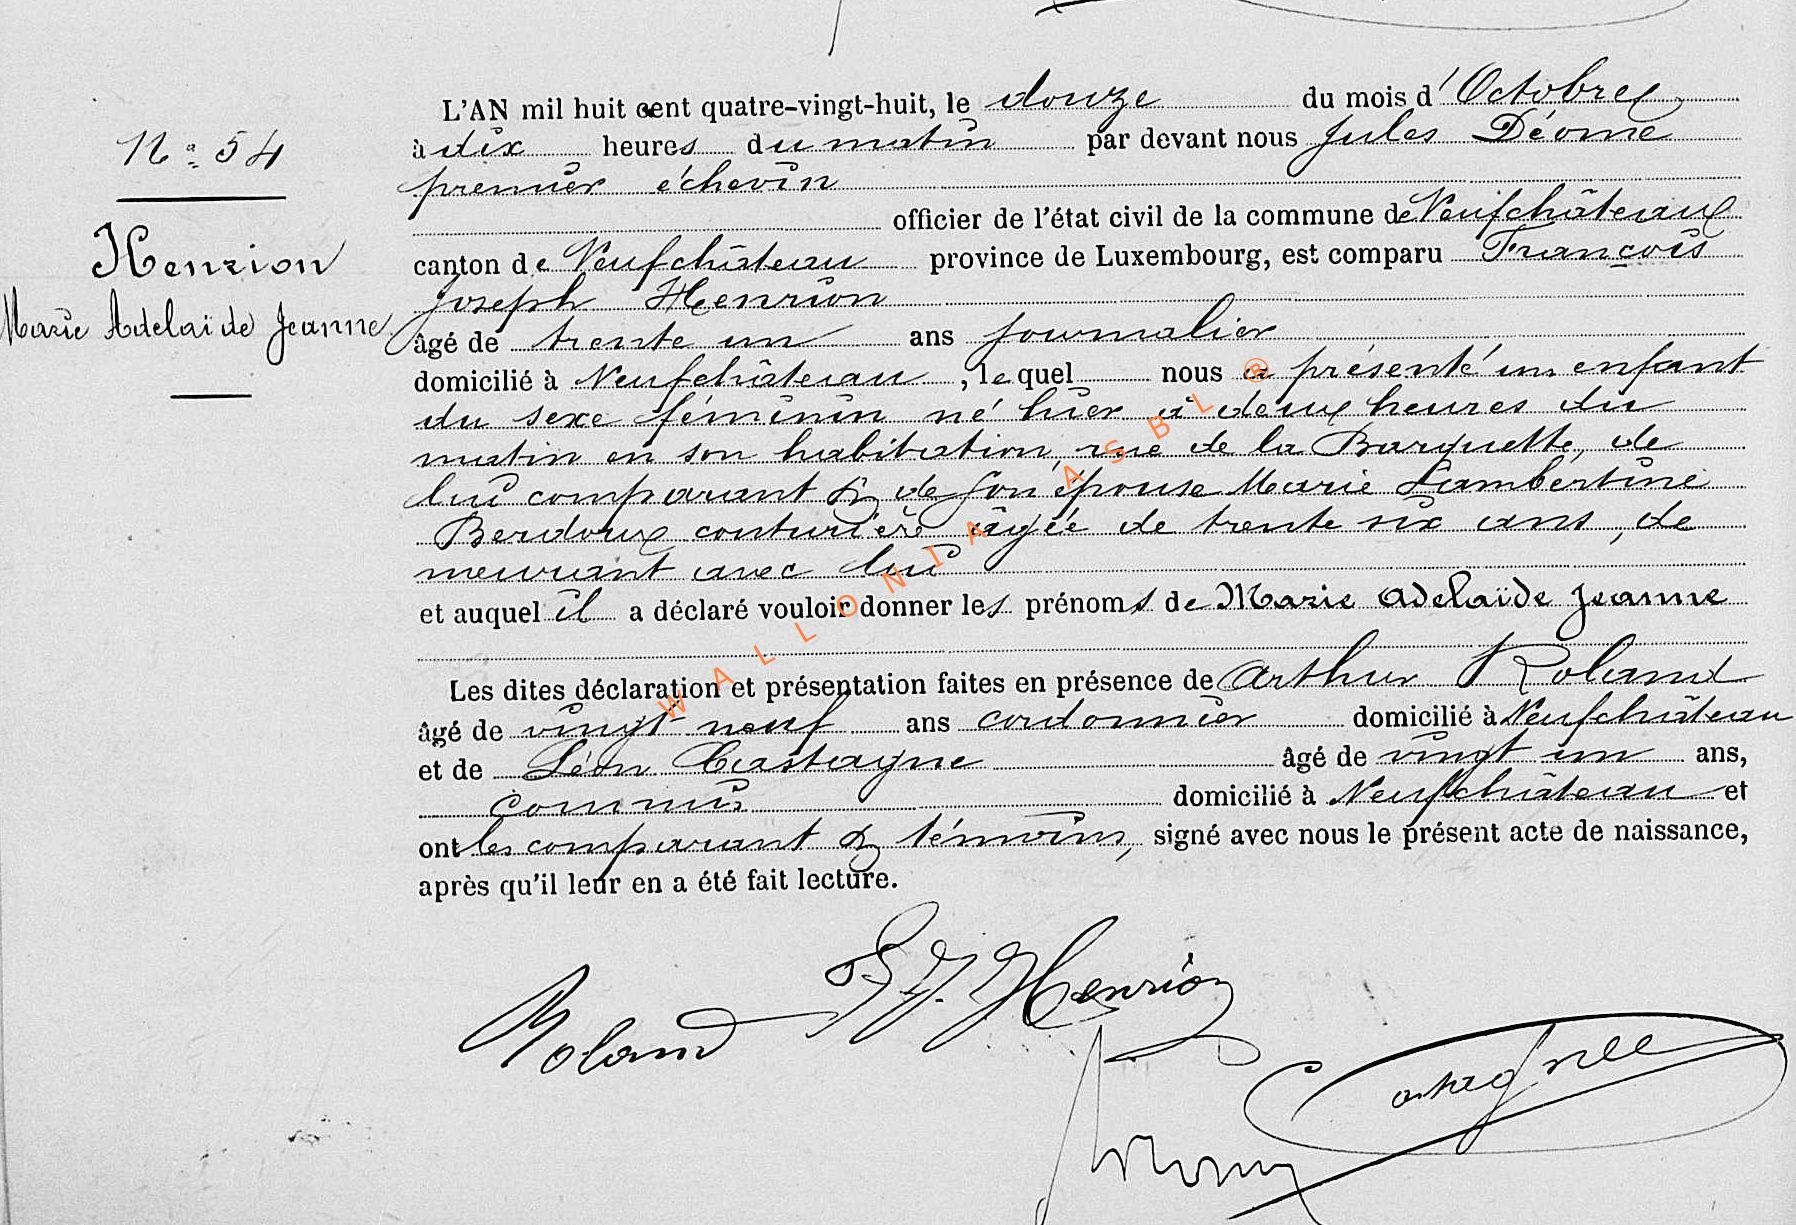 L'AN mil huit cent quatre-vingt-huit, le douze du mois d'Octobre,
à dix heures du matin par devant nous Jules Déome
premier échevin
officier de l'état civil de la commune de Neufchâteau
canton de Neufchâteau province de Luxembourg, est comparu François
Joseph Henrion
âgé de trente un ans journalier
domicilié à Neufchâteau, lequel nous a présenté un enfant
du sexe féminin né hier à deux heures du
matin en son habitation, rue de la Barquette, de
lui comparant & de son épouse Marie Lambertine
Berdoux couturière âgée de trente six ans, de
meurant avec lui
et auquel il a déclaré vouloir donner les prénoms de Marie Adelaïde Jeanne
Les dites déclaration et présentation faites en présence de Arthur Roland
âgé de vingt neuf ans cordonnier domicilié à Neufchâteau
et de Léon Castagne âgé de vingt un ans,
commis domicilié à Neufchâteau et
ont les comparant & témoins, signé avec nous le présent acte de naissance,
après qu'il leur en a été fait lecture.
N° 54
Henrion
Marie Adelaïde Jeanne
Roland
F. J. Henrion
WALLONIA ASBL ®